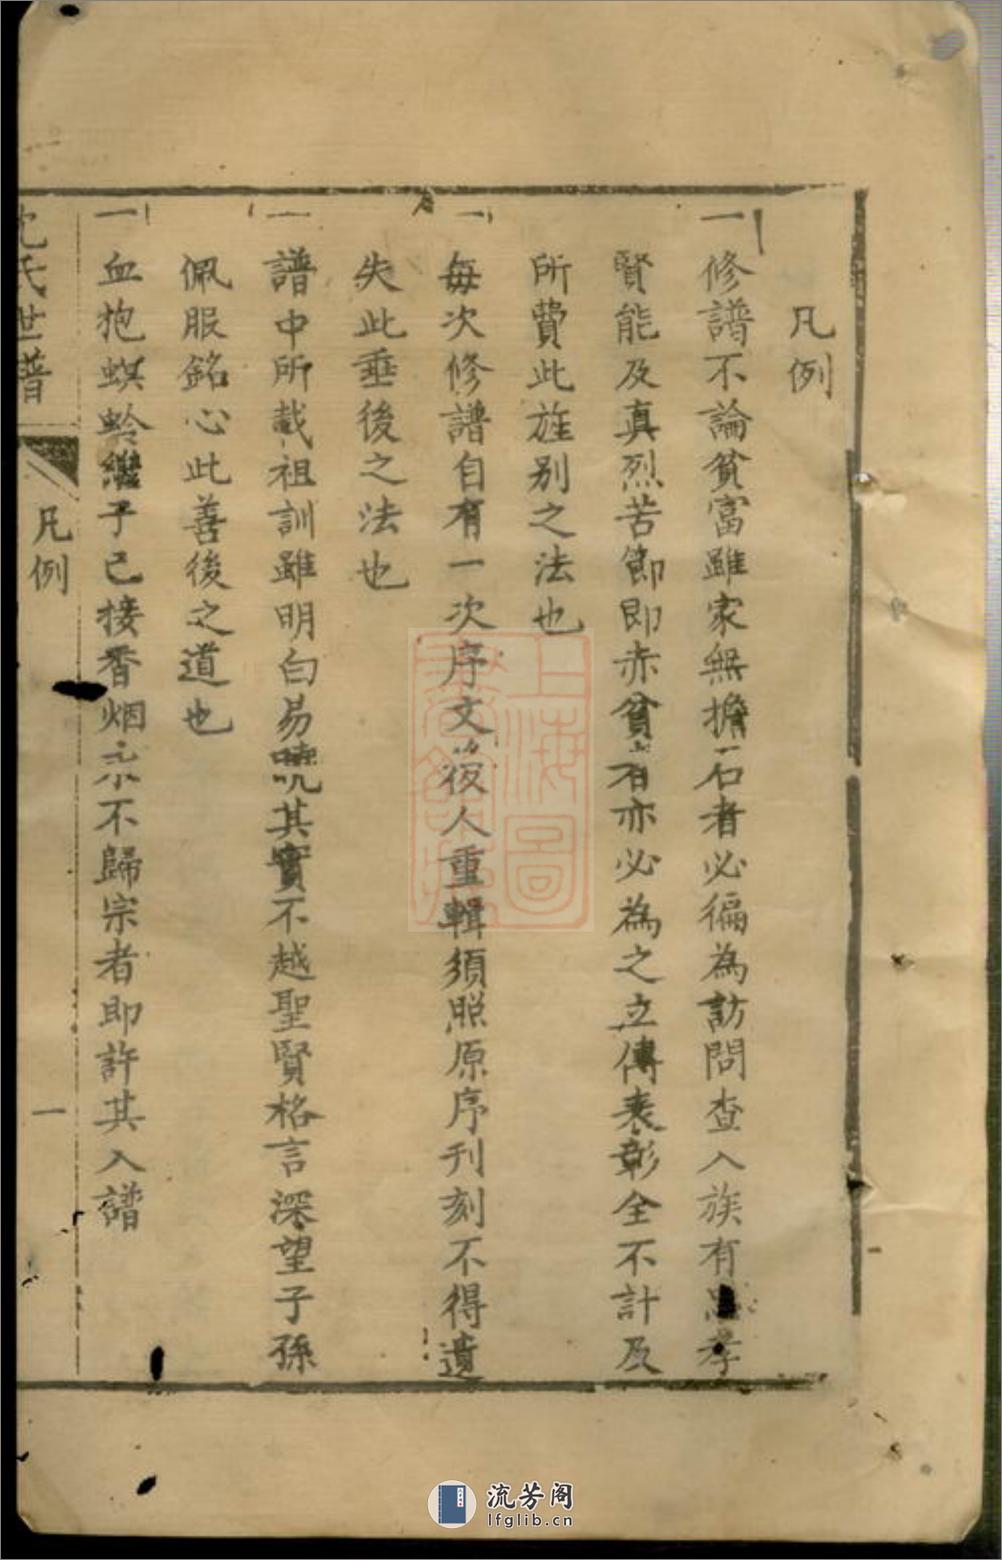 凡例
一修譜不論貧富雖家無擔石者必徧為訪問查入族有忠孝
賢能及真烈苦節即赤貧者亦必為之立傳表彰全不計及
所費此旌别之法也
一每次修譜自有一次序文後人重輯須照原序刊刻不得遺
失此垂後之法也
一譜中所載祖訓雖明白易曉其實不越聖賢格言深望子孫
佩服銘心此善後之道也
一血抱螟蛉繼子已接香烟永不歸宗者即許其入譜
氏世譜
凡例
一
上海圖
流芳阁
lfglib.cn